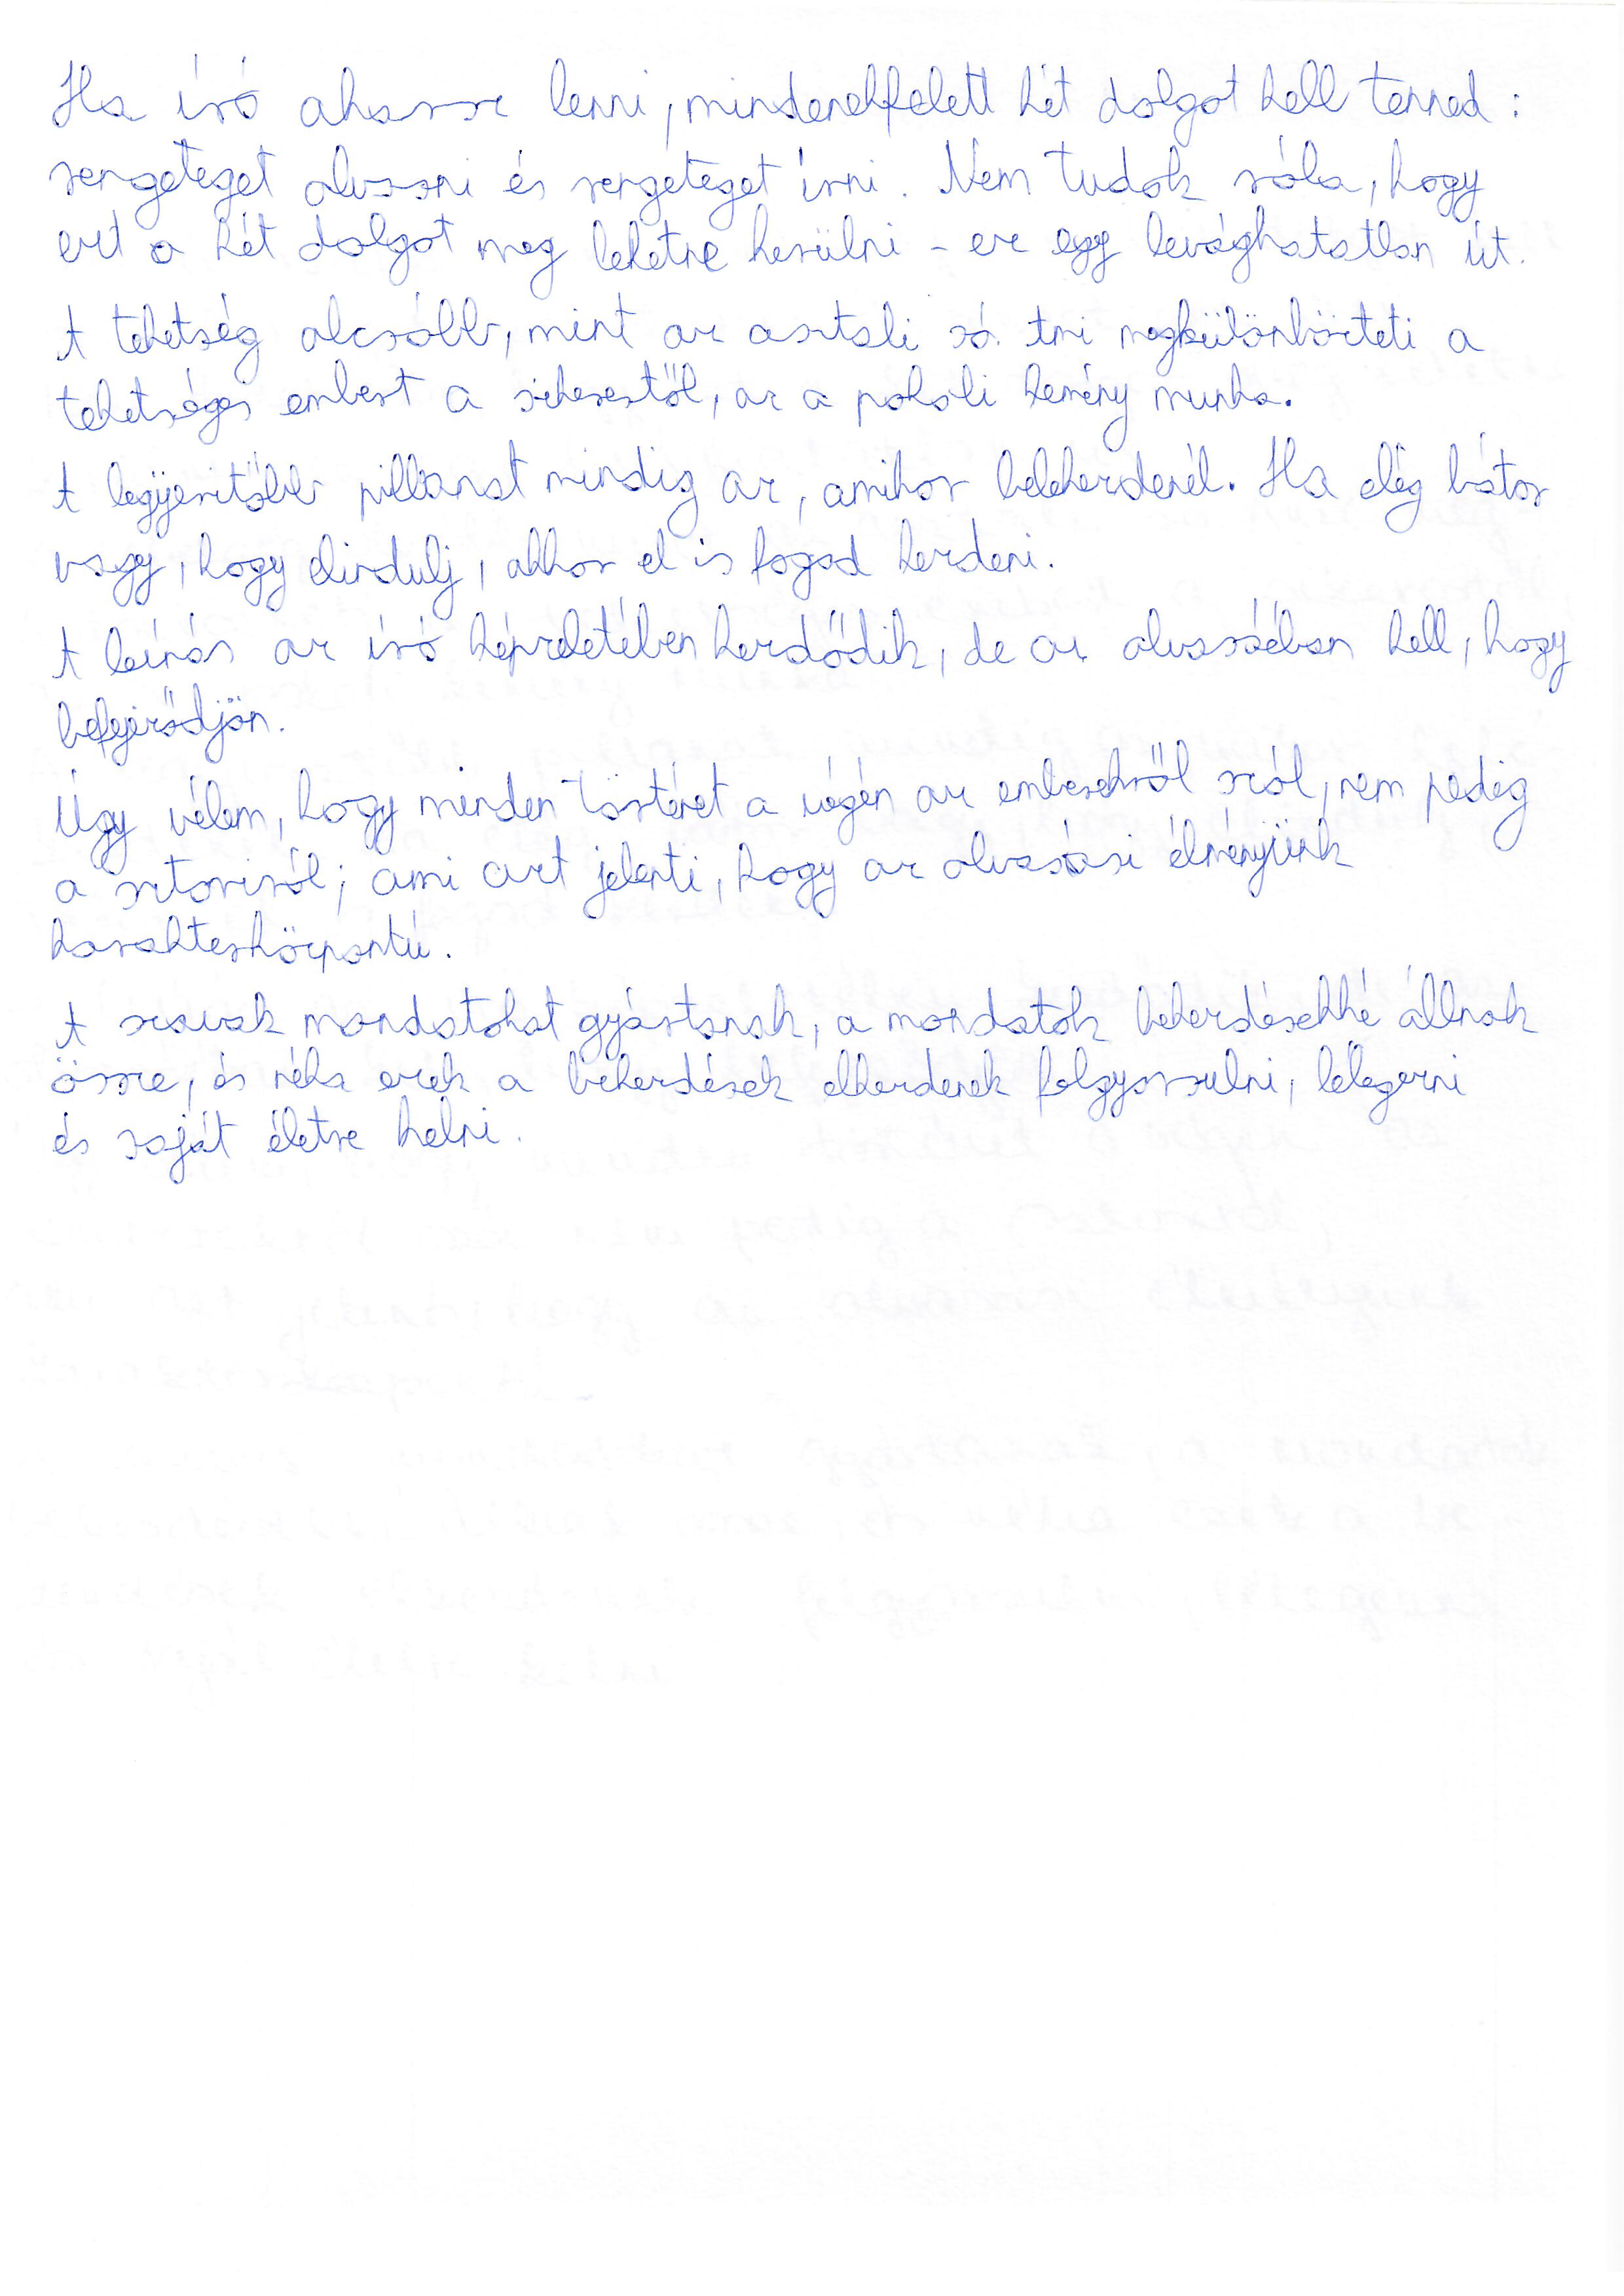 Ha író akarsz lenni, mindenekfelett két dolgot kell tenned:
rengeteget olvasni és rengeteget írni. Nem tudok róla, hogy
ezt a két dolgot meg lehetne kerülni - ez egy levághatatlan út.
A tehetség olcsóbb, mint az asztali só. Ami megkülönbözteti a
tehetséges embert a sikerestől, az a pokoli kemény munka.
A legijesztőbb pillanat mindig az, amikor belekezdenél. Ha elég bátor
vagy, hogy elindulj, akkor el is fogod kezdeni.
A leírás az író képzeletében kezdődik, de az olvasóéban kell, hogy
befejeződjön.
Úgy vélem, hogy minden történet a végén az emberekről szól, nem pedig
a sztoriról; ami azt jelenti, hogy az olvasási élményünk
karakterközpontú.
A szavak mondatokat gyártanak, a mondatok bekezdésekké állnak
össze, és néha ezek a bekezdések elkezdenek felgyorsulni, lélegezni
és saját életre kelni.